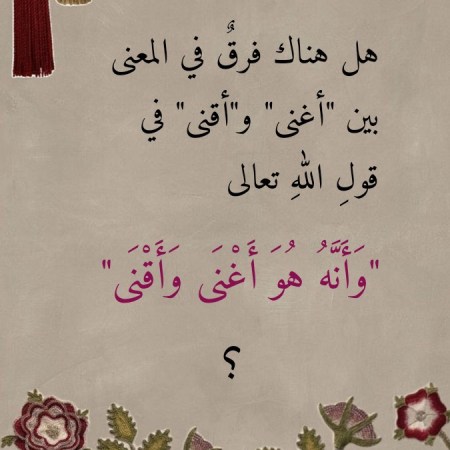 هل هناك فرقٌ في المعنى
بين "أغنى" و"أقنى" في
قولِ اللهِ تعالى
"وَأَنَّهُ هُوَ أَغْنَى وَأَقْنَى"
؟